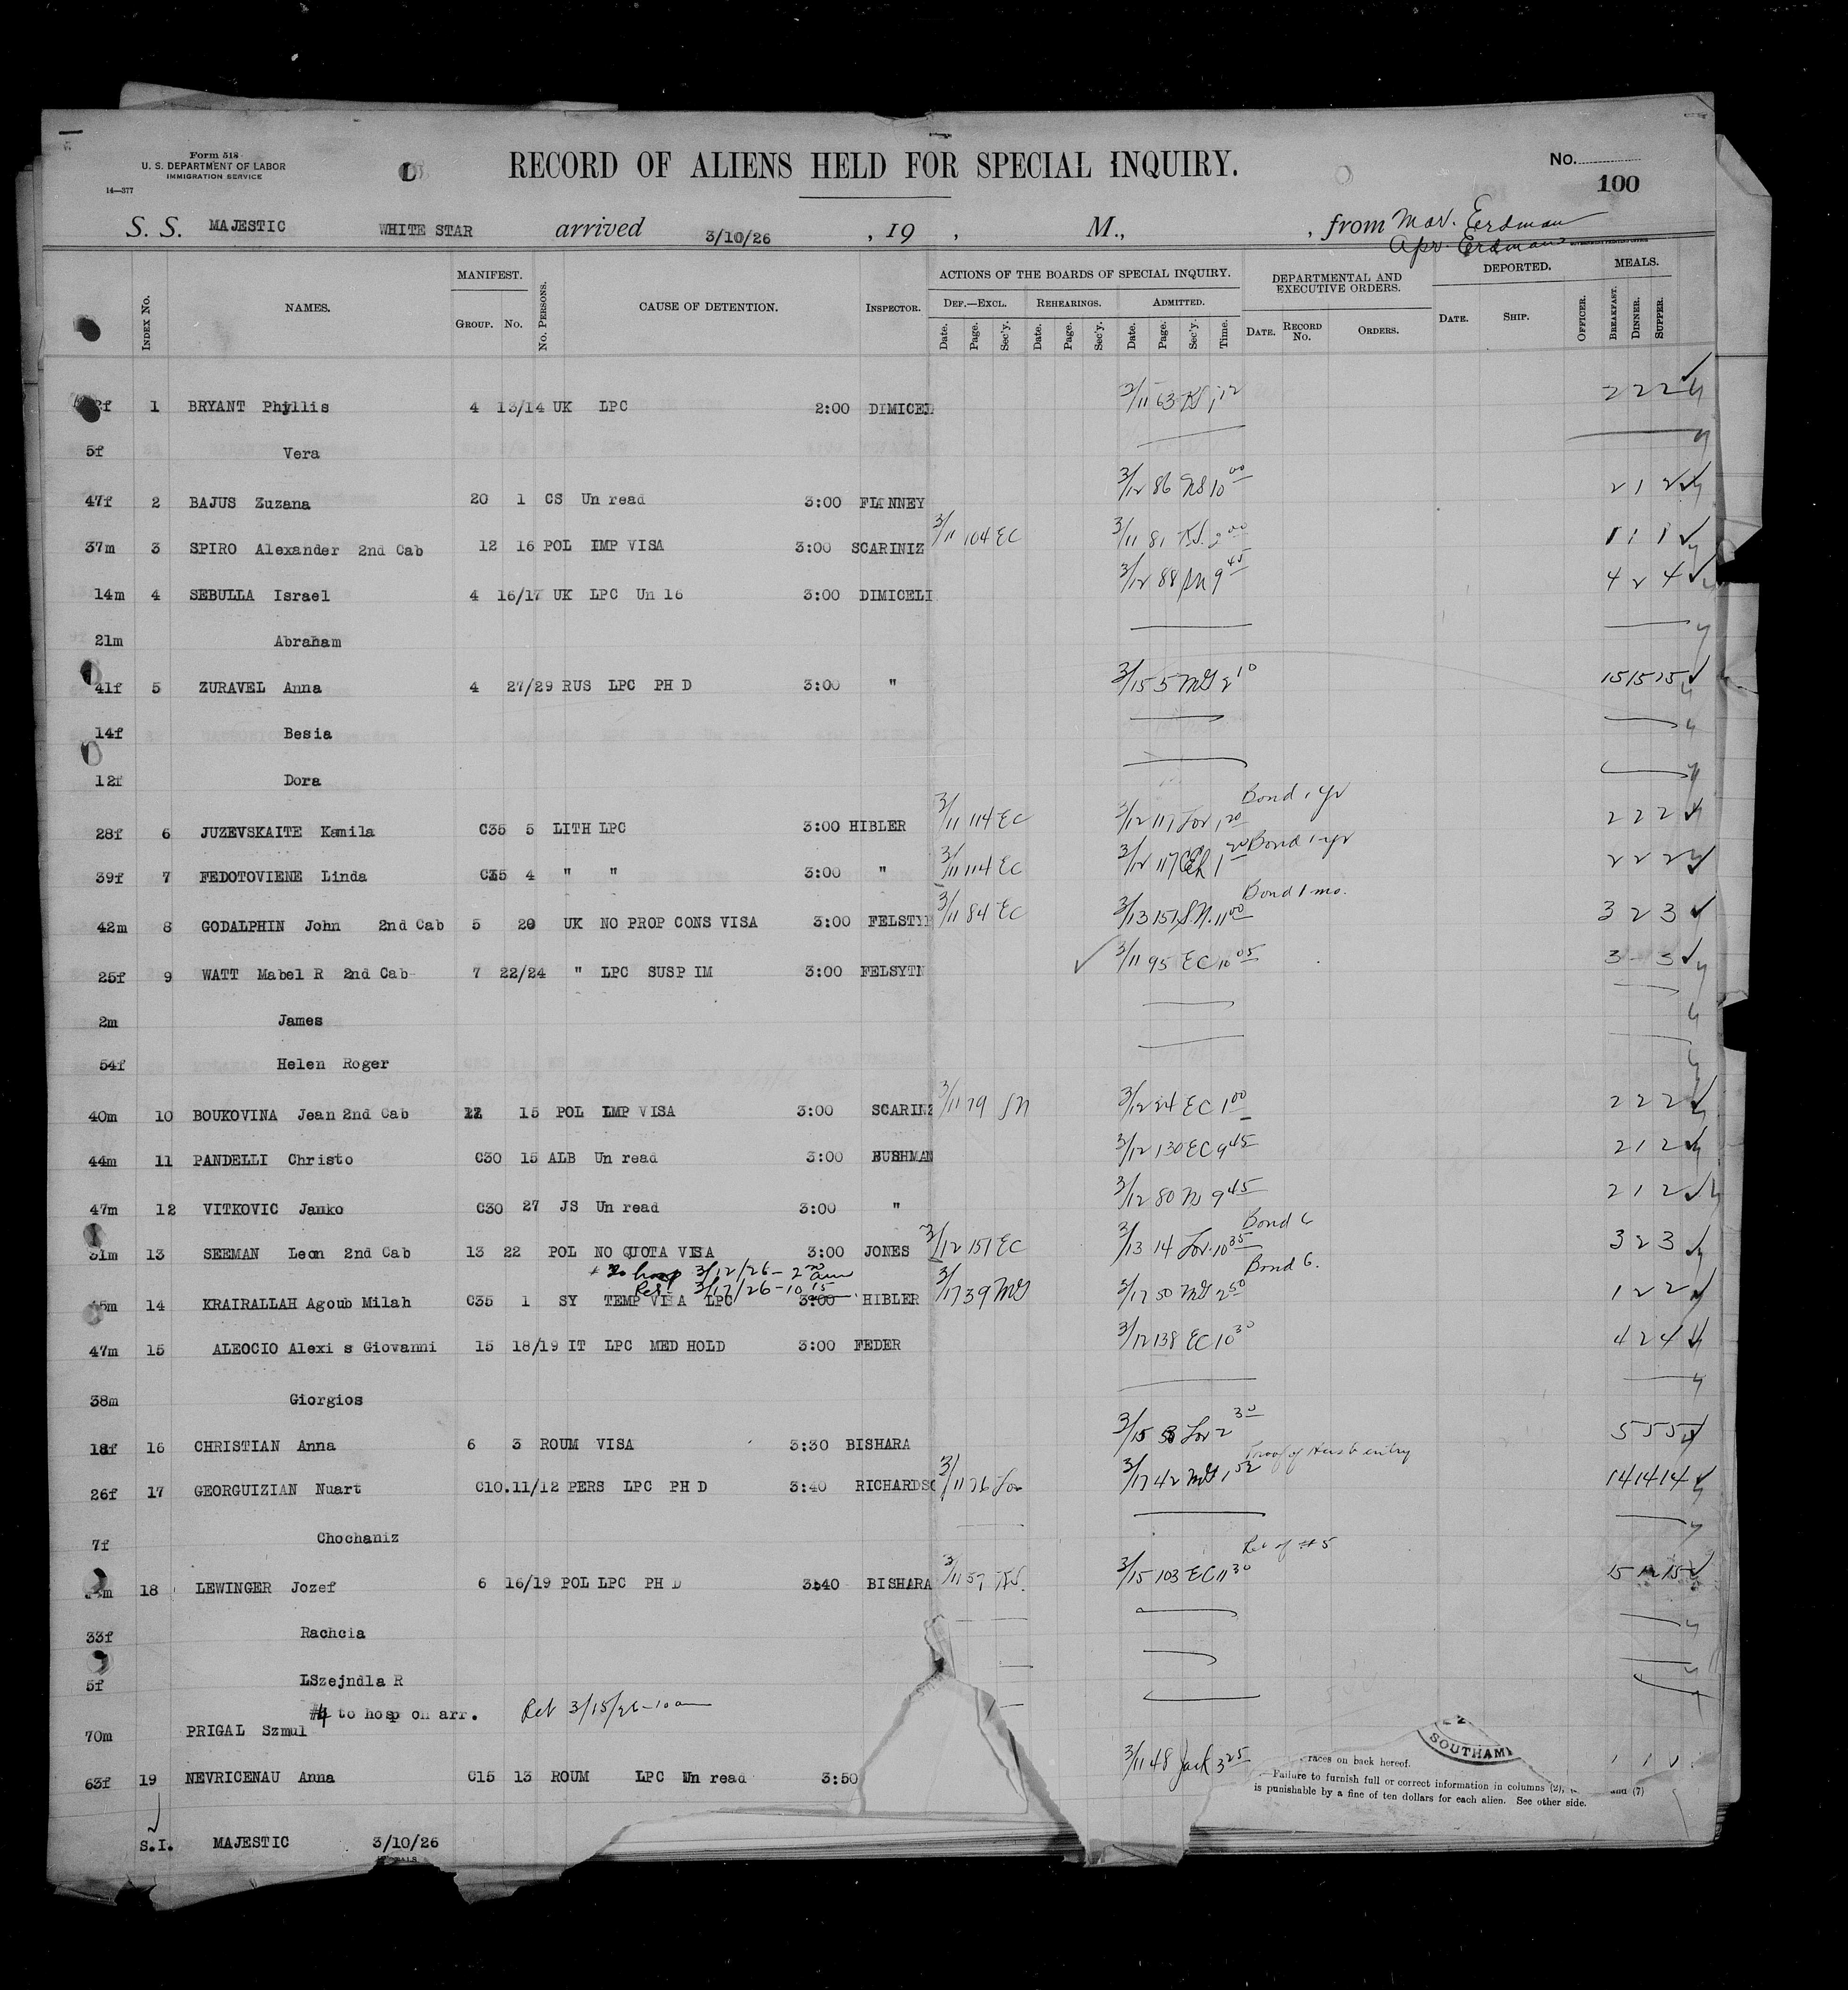 Form 518
U. S. DEPARTMENT OF LABOR
IMMIGRATION SERVICE
14—377
RECORD OF ALIENS HELD FOR SPECIAL INQUIRY.
No.
100
S. S. MAJESTIC WHITE STAR arrived 3/10/26 , 19 , M., , from Mar. Erdman
Apr. Erdman
INDEX NO. NAMES. MANIFEST. GROUP. NO. NO. PERSONS. CAUSE OF DETENTION. INSPECTOR. ACTIONS OF THE BOARDS OF SPECIAL INQUIRY. DEPARTMENTAL AND EXECUTIVE ORDERS. DEPORTED. MEALS.
DEF.—EXCL. REHEARINGS. ADMITTED.
Date. Page. Sec'y. Date. Page. Sec'y. Date. Page. Sec'y. Time. DATE. RECORD NO. ORDERS. DATE. SHIP. OFFICER. BREAKFAST. DINNER. SUPPER.
1 BRYANT Phyllis 4 13/14 UK LPC 2:00 DIMICEL 3/11 63 2 2 2
5f Vera
47f 2 BAJUS Zuzana 20 1 CS Un read 3:00 FLANNEY 3/12 86 10 00 2 1 2
37m 3 SPIRO Alexander 2nd Cab 12 16 POL IMP VISA 3:00 SCARINIZ 3/11 104 EC 3/11 81 2 00 1 1 1
14m 4 SEBULLA Israel 4 16/17 UK LPC Un 16 3:00 DIMICELI 3/12 88 9 45 4 2 4
21m Abraham
41f 5 ZURAVEL Anna 4 27/29 RUS LPC PH D 3:00 " 3/15 5 2 10 15 15 15
14f Besia
12f Dora
28f 6 JUZEVSKAITE Kamila C35 5 LITH LPC 3:00 HIBLER 3/11 114 EC 3/12 117 1 20 Bond 1 yr 2 2 2
39f 7 FEDOTOVIENE Linda C35 4 " " 3:00 " 3/11 114 EC 3/12 117 1 20 Bond 1 yr 2 2 2
42m 8 GODALPHIN John 2nd Cab 5 20 UK NO PROP CONS VISA 3:00 FELSTY 3/11 84 EC 3/13 151 S.N. 11 00 Bond 1 mo. 3 2 3
25f 9 WATT Mabel R 2nd Cab 7 22/24 " LPC SUSP IM 3:00 FELSYTN 3/11 95 EC 10 05 3 - 3
2m James
54f Helen Roger
40m 10 BOUKOVINA Jean 2nd Cab 15 POL IMP VISA 3:00 SCARINZ 3/11 79 3/12 24 EC 1 00 2 2 2
44m 11 PANDELLI Christo C30 15 ALB Un read 3:00 BUSHMAN 3/12 130 EC 9 45 2 1 2
47m 12 VITKOVIC Janko C30 27 JS Un read 3:00 " 3/12 80 9 45 2 1 2
31m 13 SEEMAN Leon 2nd Cab 13 22 POL NO QUOTA VISA 3:00 JONES 3/12 151 EC 3/13 14 10 35 Bond 6 3 2 3
To hosp 3/12/26 - 2 am
Ret 3/17/26 - 10 15
14 KRAIRALLAH Agoub Milah C35 1 SY TEMP VISA LPC 3:00 HIBLER 3/17 39 3/17 50 2 50 Bond 6. 1 2 2
47m 15 ALEOCIO Alexi s Giovanni 15 18/19 IT LPC MED HOLD 3:00 FEDER 3/12 138 EC 10 30 4 2 4
38m Giorgios
18f 16 CHRISTIAN Anna 6 3 ROUM VISA 3:30 BISHARA 3/15 2 30 5 5 5
26f 17 GEORGUIZIAN Nuart C10. 11/12 PERS LPC PH D 3:40 RICHARDSO 3/11 76 3/17 42 1 52 Proof of entry 14 14 14
7f Chochaniz
18 LEWINGER Jozef 6 16/19 POL LPC PH D 3:40 BISHARA 3/11 57 3/15 103 EC 11 30 Rel of #5 15 15
33f Racheia
5f LSzejndla R
#4 to hosp on arr. Ret 3/15/26 - 10 am
70m PRIGAL Szmul
63f 19 NEVRICENAU Anna C15 13 ROUM LPC Un read 3:50 3/11 48 Jack 3 25 1 1
races on back hereof.
SOUTHAM
Failure to furnish full or correct information in columns (2), and (7)
is punishable by a fine of ten dollars for each alien. See other side.
S.I. MAJESTIC 3/10/26